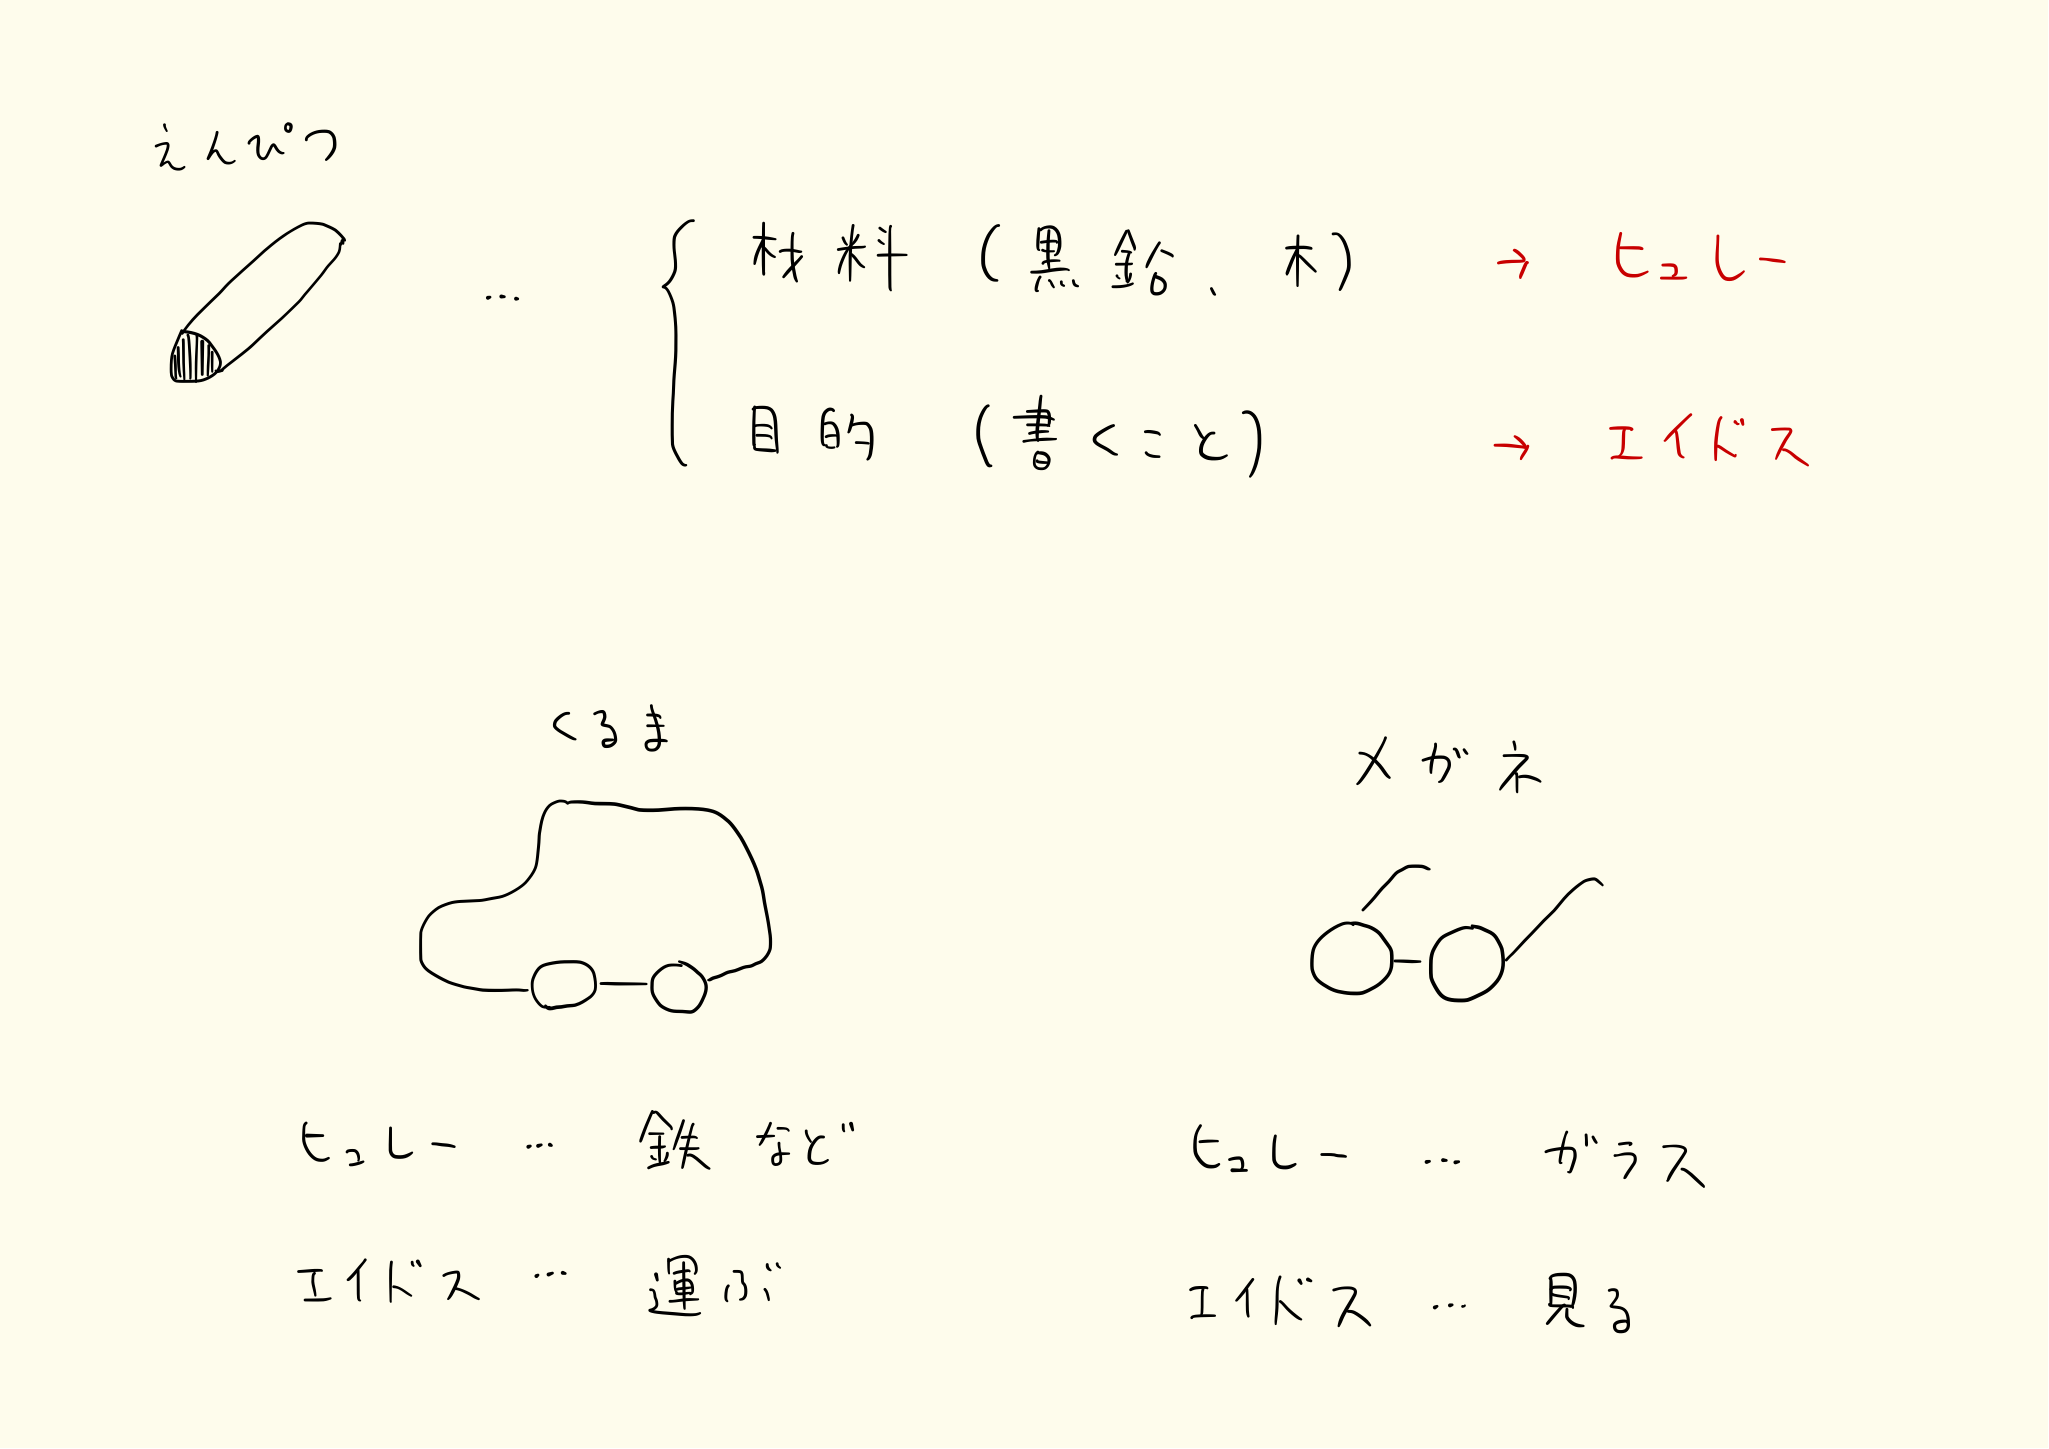 えんぴつ
… 材料（黒鉛、木） → ヒュレー
目的（書くこと） → エイドス
くるま
メガネ
ヒュレー … 鉄など
エイドス … 運ぶ
ヒュレー … ガラス
エイドス … 見る